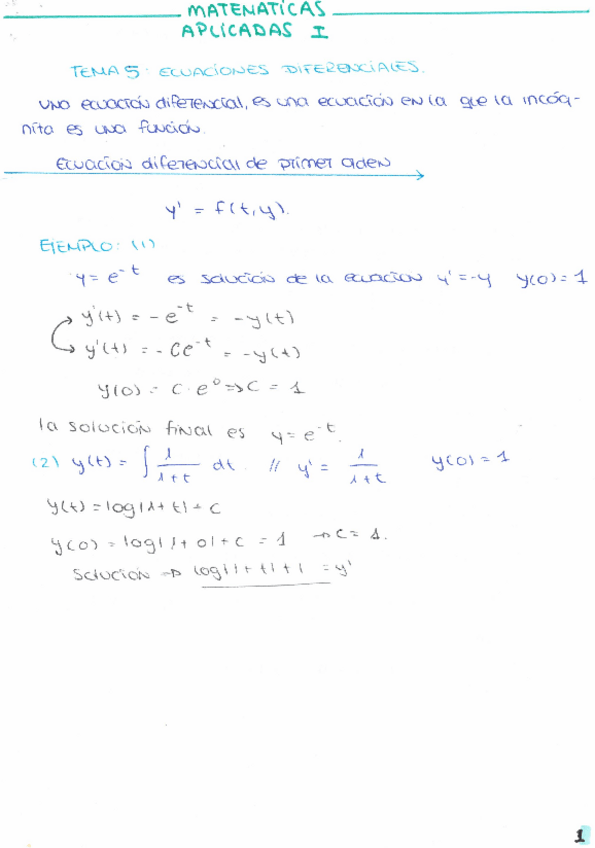 MATEMATICAS
APLICADAS I
TEMA 5: ECUACIONES DIFERENCIALES.
una ecuación diferencial, es una ecuación en la que la incóg-
nita es una función.
Ecuacion diferencial de primer orden
y' = f(t,y).
EJEMPLO: (1)
y = e^-t es solución de la ecuacion y' = -y y(0) = 1
y'(t) = -e^-t = -y(t)
y'(t) = -Ce^-t = -y(t)
y(0) = C · e^0 => C = 1
la solución final es y = e^-t.
(2) y(t) = ∫ 1/(1+t) dt. // y' = 1/(1+t) y(0) = 1
y(t) = log|1+t| + C
y(0) = log|1+0| + C = 1 → C = 1.
Solución → log|1+t| + 1 = y'
1